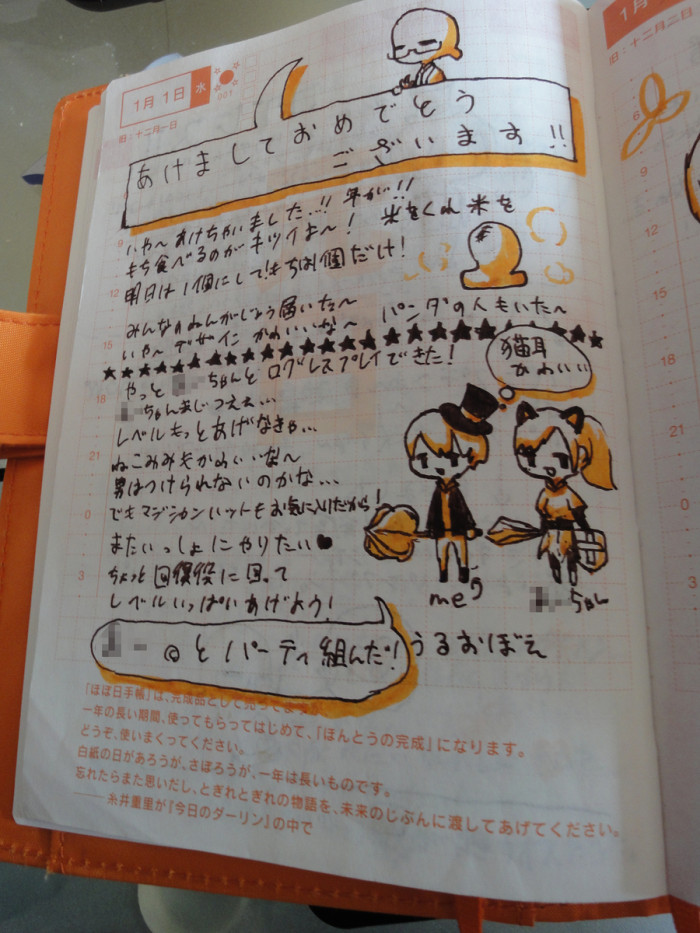 1月1日 水
001
旧:十二月一日
あけましておめでとう
ございます!!
いや~あけちゃいました…!! 年が!!
もち食べるのがキツイよ~! 米をくれ米を
明日は1個にして!もちは1個だけ!
みんなのねんがじょう届いた~ パンダの人もいた~
いや~デザインかわいいな~
やっと ーちゃんとログレスプレイできた!
ーちゃんまじつえぇ…
レベルもっとあげなきゃ…
ねこみみもかわいいな~
男はつけられないのかな…
でもマジシャンハットもお気に入りだから!
またいっしょにやりたい♥
ちょっと回復役に回って
レベルいっぱいあげよう!
猫耳
かわいい
me
ーちゃん
ー @とパーティ組んだ!
うるおぼえ
「ほぼ日手帳」は、完成品として売ってますが、
一年の長い期間、使ってもらってはじめて、「ほんとうの完成」になります。
どうぞ、使いまくってください。
白紙の日があろうが、さぼろうが、一年は長いものです。
忘れたらまた思いだし、とぎれとぎれの物語を、未来のじぶんに渡してあげてください。
——糸井重里が『今日のダーリン』の中で
6
9
12
15
18
21
0
3
1月
旧:十二月二日
6
9
12
15
18
21
0
3